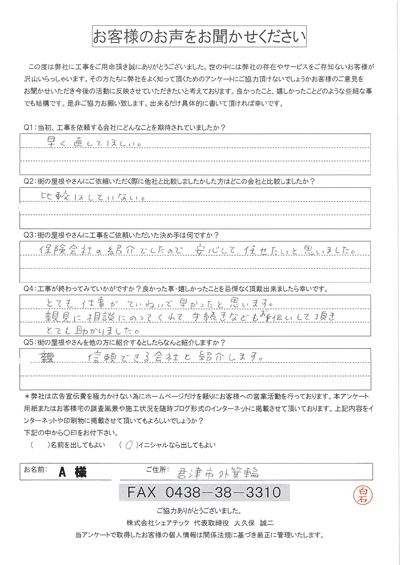 お客様のお声をお聞かせください
この度は弊社に工事をご用命頂き誠にありがとうございました。世の中には弊社の存在やサービスをご存知ないお客様が
沢山いらっしゃいます。その方たちに弊社をよく知って頂くためのアンケートにご協力頂けないでしょうかお客様のご意見を
お聞かせいただき今後の活動に反映させていただきたいと考えております。良かったこと、嬉しかったことどのような些細な事
でも結構です。是非ご協力お願い致します。出来るだけ具体的に書いて頂ければ幸いです。
Q1:当初、工事を依頼する会社にどんなことを期待されていましたか？
早く直してほしい。
Q2:街の屋根やさんにご依頼いただく際に他社と比較しましたかした方はどこの会社と比較しましたか？
比較はしていない。
Q3:街の屋根やさんに工事をご依頼いただいた決め手は何ですか？
保険会社の紹介でしたので 安心して 任せたいと思いました。
Q4:工事が終わってみていかがですか？良かった事・嬉しかったことを忌憚なく頂戴出来ましたら幸いです。
とても 仕事が ていねいで 早かったと 思います。
親見に 相談にのってくれて 手続きなどもお手伝いして頂き
とても助かりました。
Q5:街の屋根やさんを他の方に紹介するとしたらなんと紹介しますか？
信頼できる会社と紹介します。
＊弊社は広告宣伝費を極力かけない為にホームページだけを頼りにお客様への営業活動を行っております。本アンケート
用紙またはお客様宅の調査風景や施工状況を随時ブログ形式のインターネットに掲載させて頂いております。上記内容をイ
ンターネットや印刷物に掲載させて頂いてもよろしいでしょうか？
下記の中から〇印をお付下さい。
（　）名前を出してもよい （〇）イニシャルなら出してもよい
お名前: A 様 ご住所: 君津市外箕輪
FAX 0438-38-3310
白石
ご協力ありがとうございました。
株式会社シェアテック 代表取締役 大久保 誠二
当アンケートで取得したお客様の個人情報は関係法規に基づき厳正に管理いたします。